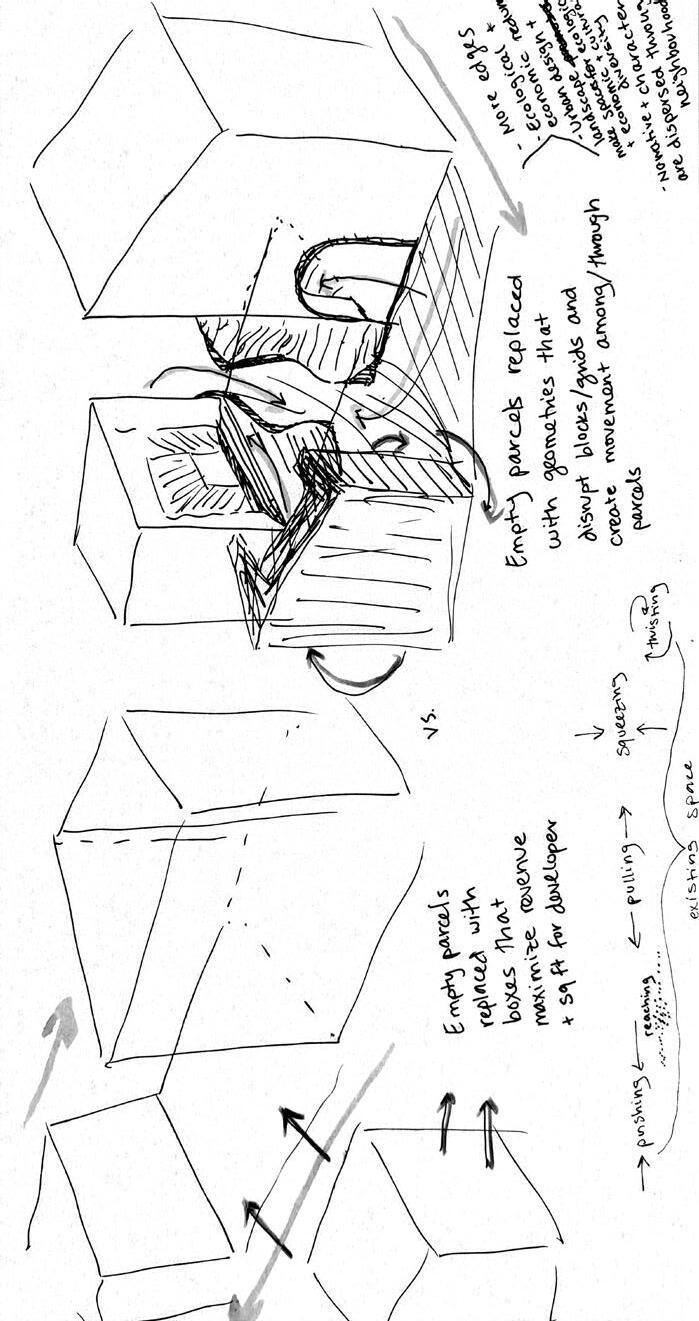 Empty parcels
replaced with
boxes that
maximize revenue
+ sq ft for developer
vs.
Empty parcels replaced
with geometries that
disrupt blocks/grids and
create movement among/through
parcels
- More edges
- Ecological +
economic
- Urban design +
landscape
make spaces for
+ economic diversity
- Narrative + character
are dispersed throu
neighbourhood
pushing
reaching
pulling
squeezing
twisting
existing space